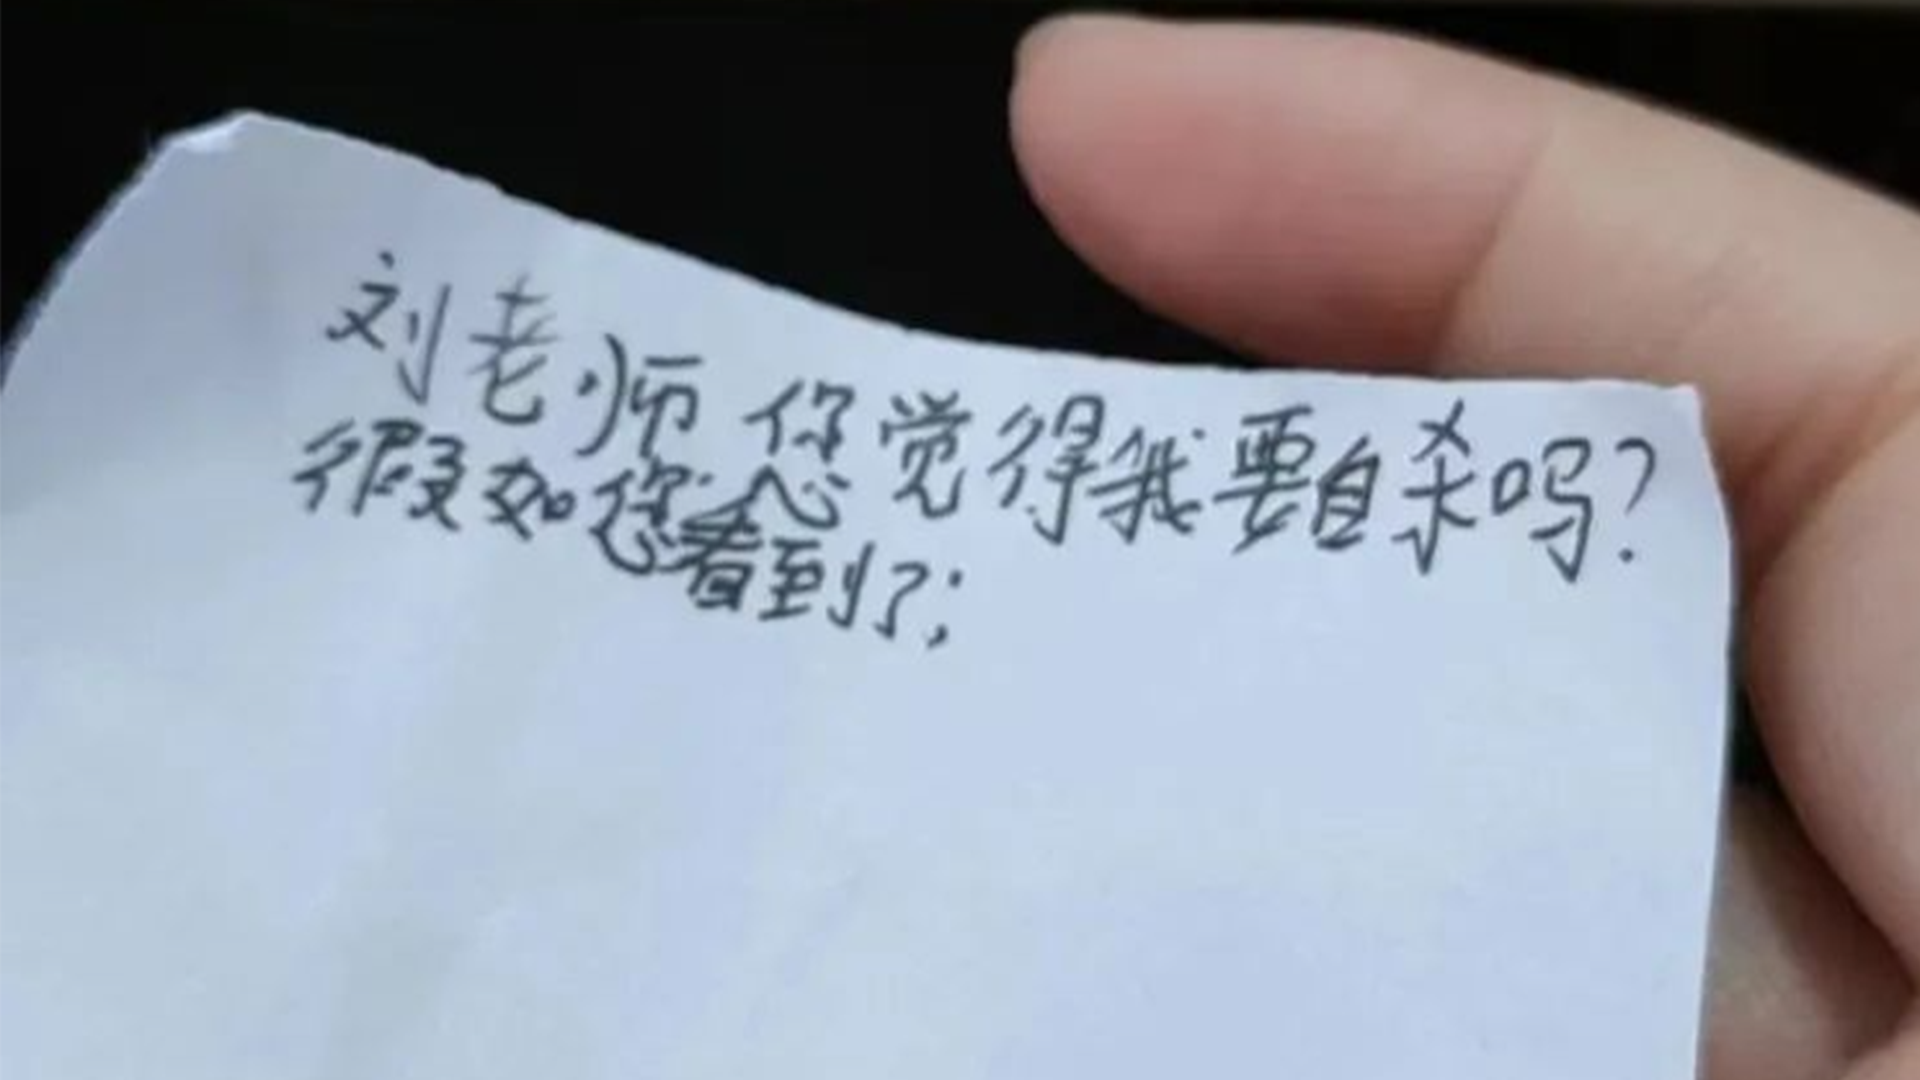 刘老师您觉得我要自杀吗?
假如您看到了;